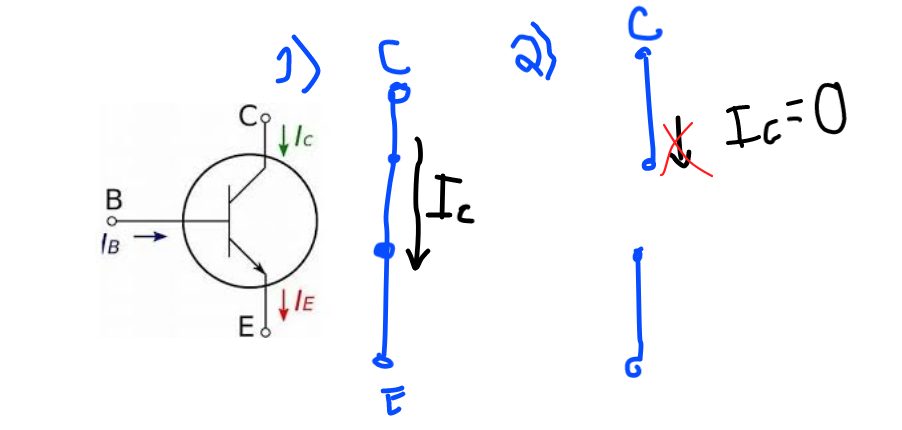 C
I_C
B
I_B
I_E
E
1)
C
I_C
E
2)
C
I_C=0